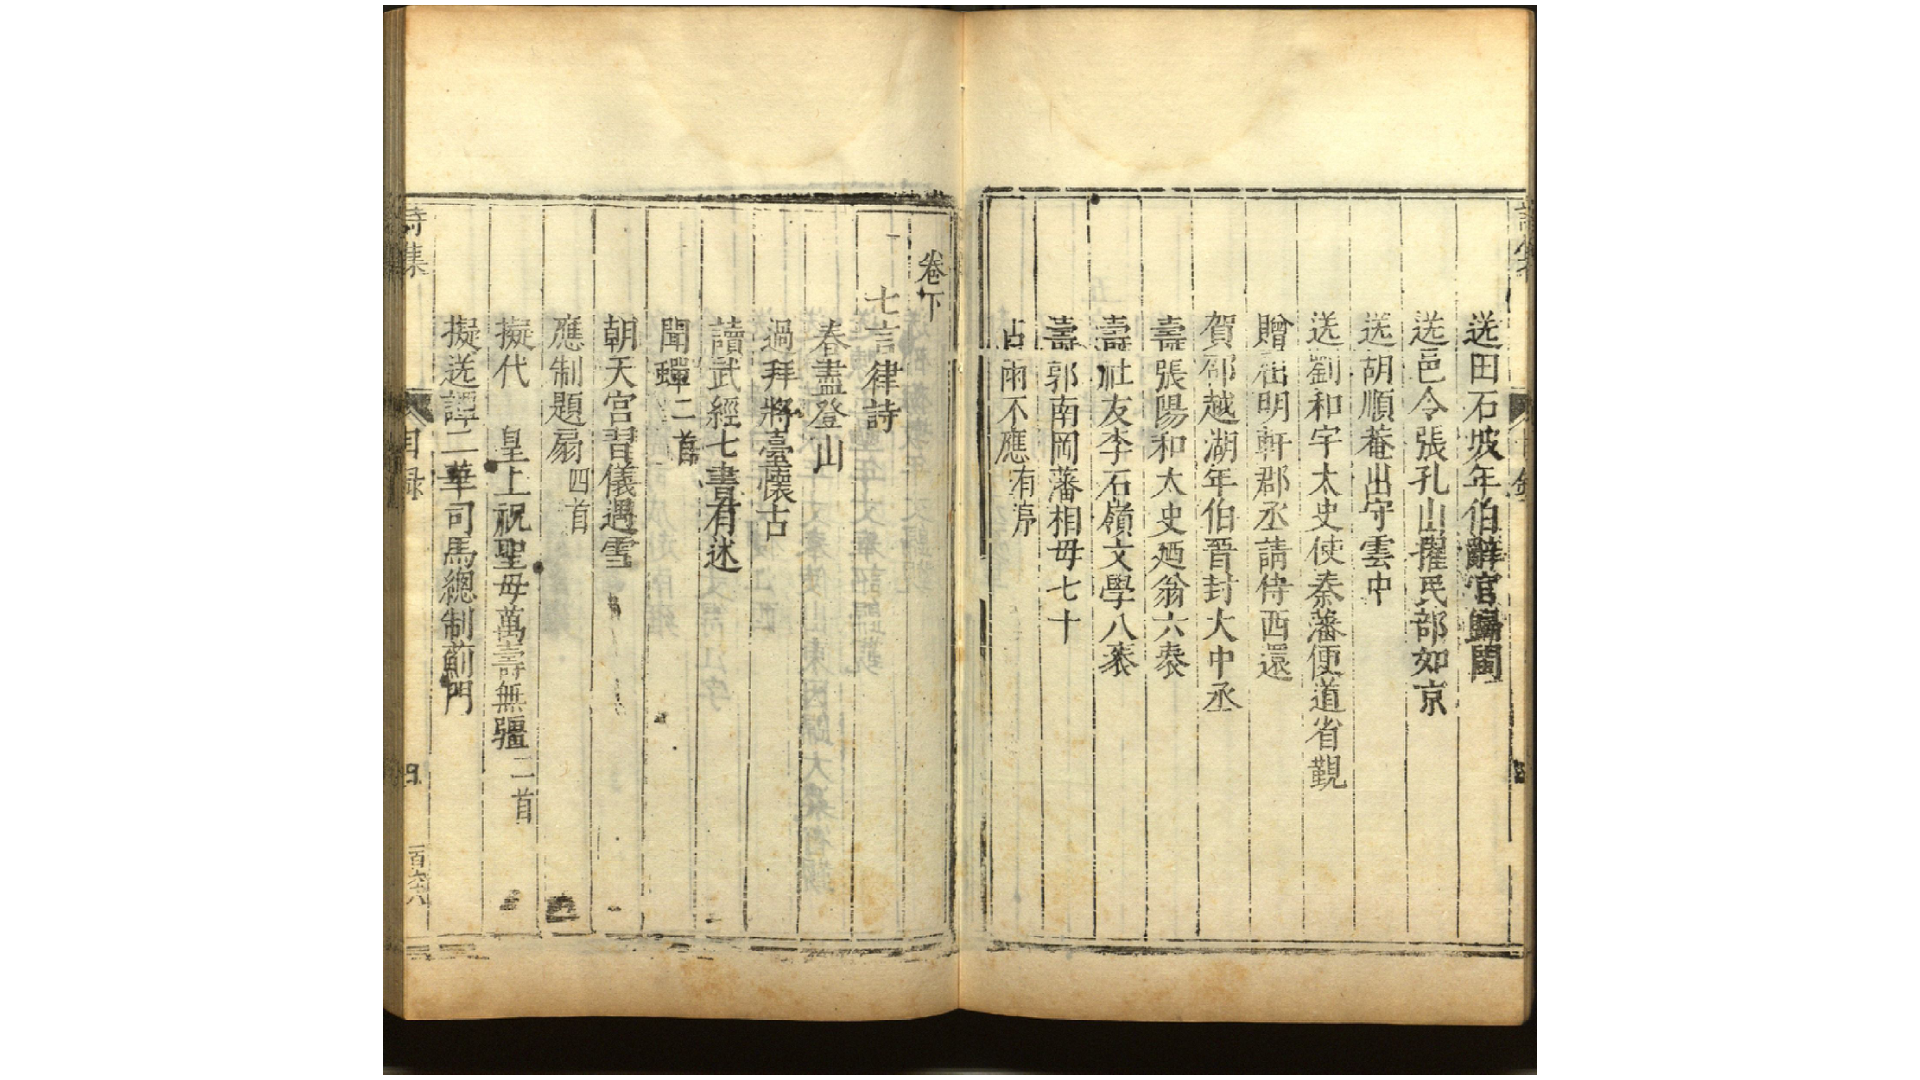 送田石坡年伯辭官歸閩
送邑令張孔山擢民部如京
送胡順菴出守雲中
送劉和宇太史使秦藩便道省覲
贈崔明軒郡丞請侍西還
賀邵越湖年伯晋封大中丞
壽張陽和太史廼翁六袠
壽社友李石嶺文學八袠
壽郭南岡藩相母七十
占雨不應有淳
卷下
七言律詩
春盡登山
過拜將臺懷古
讀武經七書有述
聞蟬二首
朝天宮習儀遇雪
應制題扇四首
擬代 皇上祝聖母萬壽無疆二首
擬送譚二華司馬總制薊門
詩集
目録
百六八